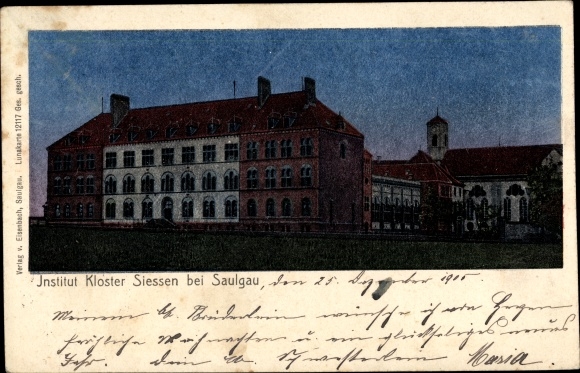 Verlag v. Eisenbach, Saulgau. Lunakarte 12117 Ges. gesch.
Jnstitut Kloster Siessen bei Saulgau, den 25. Dezember 1905
Meinem lb. Brüderlein wünsche ich von Herzen
fröhliche Weihnachten u ein glückseliges neues
Jahr. Dein lb. Schwesterlein Maria